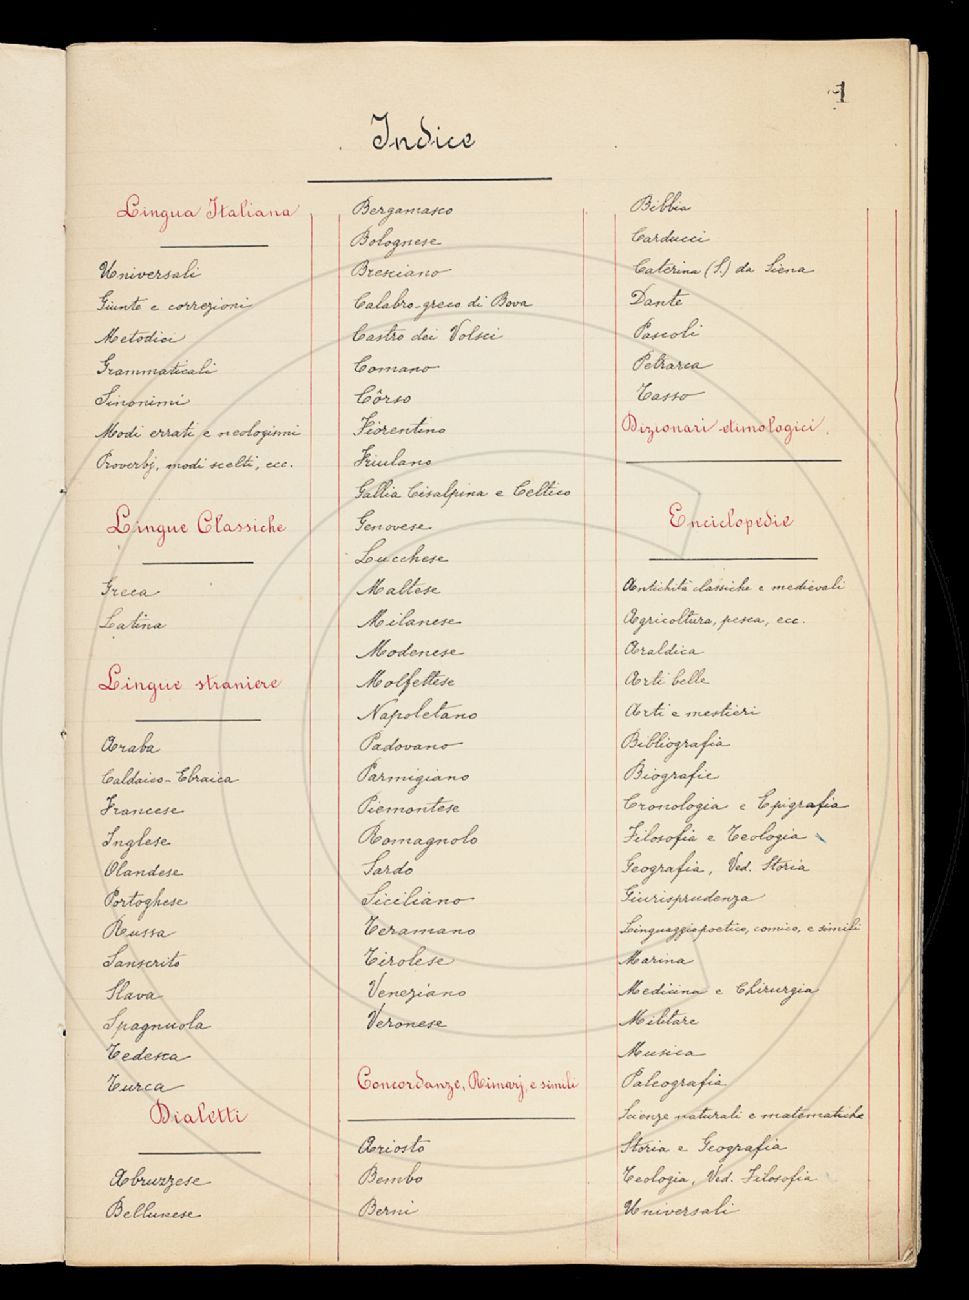 1
Indice
Lingua Italiana
Universali
Giunte e correzioni
Metodici
Grammaticali
Sinonimi
Modi errati e neologismi
Proverbj, modi scelti, ecc.
Lingue Classiche
Greca
Latina
Lingue straniere
Araba
Caldaico-Ebraica
Francese
Inglese
Olandese
Portoghese
Russa
Sanscrito
Slava
Spagnuola
Tedesca
Turca
Dialetti
Abruzzese
Bellunese
Bergamasco
Bolognese
Bresciano
Calabro-greco di Bova
Castro dei Volsci
Comano
Côrso
Fiorentino
Friulano
Gallia Cisalpina e Celtico
Genovese
Lucchese
Maltese
Milanese
Modenese
Molfettese
Napoletano
Padovano
Parmigiano
Piemontese
Romagnolo
Sardo
Siciliano
Teramano
Tirolese
Veneziano
Veronese
Concordanze, Rimarj, e simili
Ariosto
Bembo
Berni
Bibbia
Carducci
Caterina (S.) da Siena
Dante
Pascoli
Petrarca
Tasso
Dizionari etimologici.
Enciclopedie
Antichità classiche e medievali
Agricoltura, pesca, ecc.
Araldica
Arti belle
Arti e mestieri
Bibliografia
Biografie
Cronologia e Epigrafia
Filosofia e Teologia
Geografia, Ved. Storia
Giurisprudenza
Linguaggio poetico, comico, e simili
Marina
Medicina e Chirurgia
Militare
Musica
Paleografia
Scienze naturali e matematiche
Storia e Geografia
Teologia, Ved. Filosofia
Universali